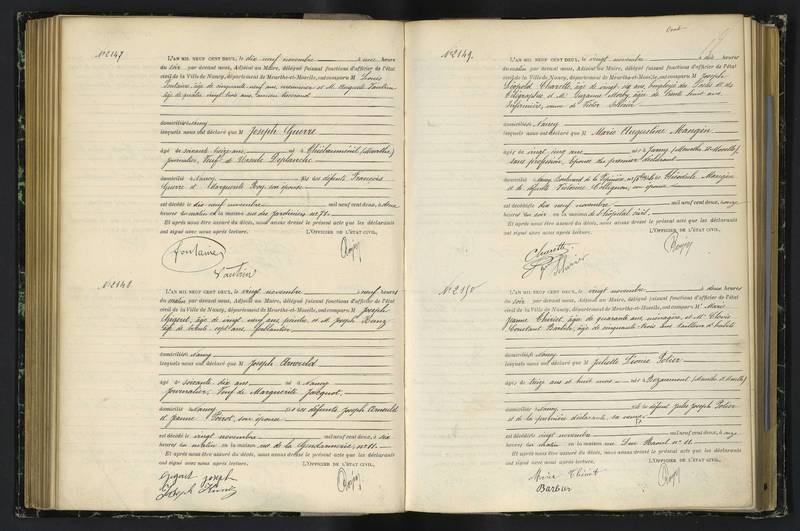 N° 2147
L'AN MIL NEUF CENT DEUX, le dix neuf novembre à onze heures
du soir par devant nous, Adjoint au Maire, délégué faisant fonctions d'officier de l'état
civil de la Ville de Nancy, département de Meurthe-et-Moselle, ont comparu M Louis
Fontaine, âgé de cinquante neuf ans, et M. Vautrin
âgé de quatre vingt trois ans,
domiciliés Nancy
lesquels nous ont déclaré que M Joseph Guerre
âgé de soixante treize ans né à Thiébauménil (Meurthe)
journalier, Veuf de Deplanche
domicilié à Nancy fils des défunts François
Guerre et Marguerite Roy, son épouse
est décédé le dix neuf novembre mil neuf cent deux, à deux
heures du matin en la maison rue des Jardiniers n° 71.
Et après nous être assuré du décès, nous avons dressé le présent acte que les déclarants
ont signé avec nous après lecture. L'OFFICIER DE L'ÉTAT CIVIL,
Fontaine
Vautrin
N° 2148
L'AN MIL NEUF CENT DEUX, le vingt novembre à neuf heures
du matin par devant nous, Adjoint au Maire, délégué faisant fonctions d'officier de l'état
civil de la Ville de Nancy, département de Meurthe-et-Moselle, ont comparu M Joseph
Gigout, âgé de vingt neuf ans, peintre, et M. Joseph
âgé de trente sept ans, ferblantier
domiciliés Nancy
lesquels nous ont déclaré que M Joseph Arnould
âgé de soixante dix ans né à Nancy
journalier, Veuf de Marguerite Jacquot,
domicilié à Nancy fils des défunts Joseph Arnould
et Jeanne Poirot, son épouse
est décédé le vingt novembre mil neuf cent deux, à six
heures du matin en la maison rue de la Gendarmerie, n° 11.
Et après nous être assuré du décès, nous avons dressé le présent acte que les déclarants
ont signé avec nous après lecture. L'OFFICIER DE L'ÉTAT CIVIL,
Gigout Joseph
Joseph
Cent
N° 2149.
L'AN MIL NEUF CENT DEUX, le vingt novembre à dix heures
du matin par devant nous, Adjoint au Maire, délégué faisant fonctions d'officier de l'état
civil de la Ville de Nancy, département de Meurthe-et-Moselle, ont comparu M Joseph
Léopold Charette, âgé de vingt six ans, employé des Postes et des
Télégraphes, et M. Suzanne âgée de trente huit ans
infirmière, veuve de Victor
domiciliés Nancy
lesquels nous ont déclaré que M Marie Augustine Mangin
âgée de vingt cinq ans née à Jarny (Meurthe et Moselle)
sans profession, épouse du premier déclarant
domiciliée à Nancy, Boulevard de la Pépinière, fille de Théodule Mangin
et de défunte Victorine Collignon, son épouse
est décédée le dix neuf novembre mil neuf cent deux, à onze
heures du soir en la maison de l'hôpital civil.
Et après nous être assuré du décès, nous avons dressé le présent acte que les déclarants
ont signé avec nous après lecture. L'OFFICIER DE L'ÉTAT CIVIL,
Charette
N° 2150
L'AN MIL NEUF CENT DEUX, le vingt novembre à deux heures
du soir par devant nous, Adjoint au Maire, délégué faisant fonctions d'officier de l'état
civil de la Ville de Nancy, département de Meurthe-et-Moselle, ont comparu M Marie
Jeanne Thiriet, âgée de quarante ans, ménagère, et M. Clovis
Constant Barbier, âgé de cinquante trois ans tailleur d'habits
domiciliés Nancy
lesquels nous ont déclaré que M Juliette Léonie Potier
âgée de treize ans et huit mois née à Bezaumont (Meurthe et Moselle)
domiciliée à Nancy fille de défunt Jules Joseph Potier
et de la première déclarante, sa veuve
est décédée le vingt novembre mil neuf cent deux, à onze
heures du matin en la maison rue Duc Raoul n° 11.
Et après nous être assuré du décès, nous avons dressé le présent acte que les déclarants
ont signé avec nous après lecture. L'OFFICIER DE L'ÉTAT CIVIL,
Marie Thiriet
Barbier